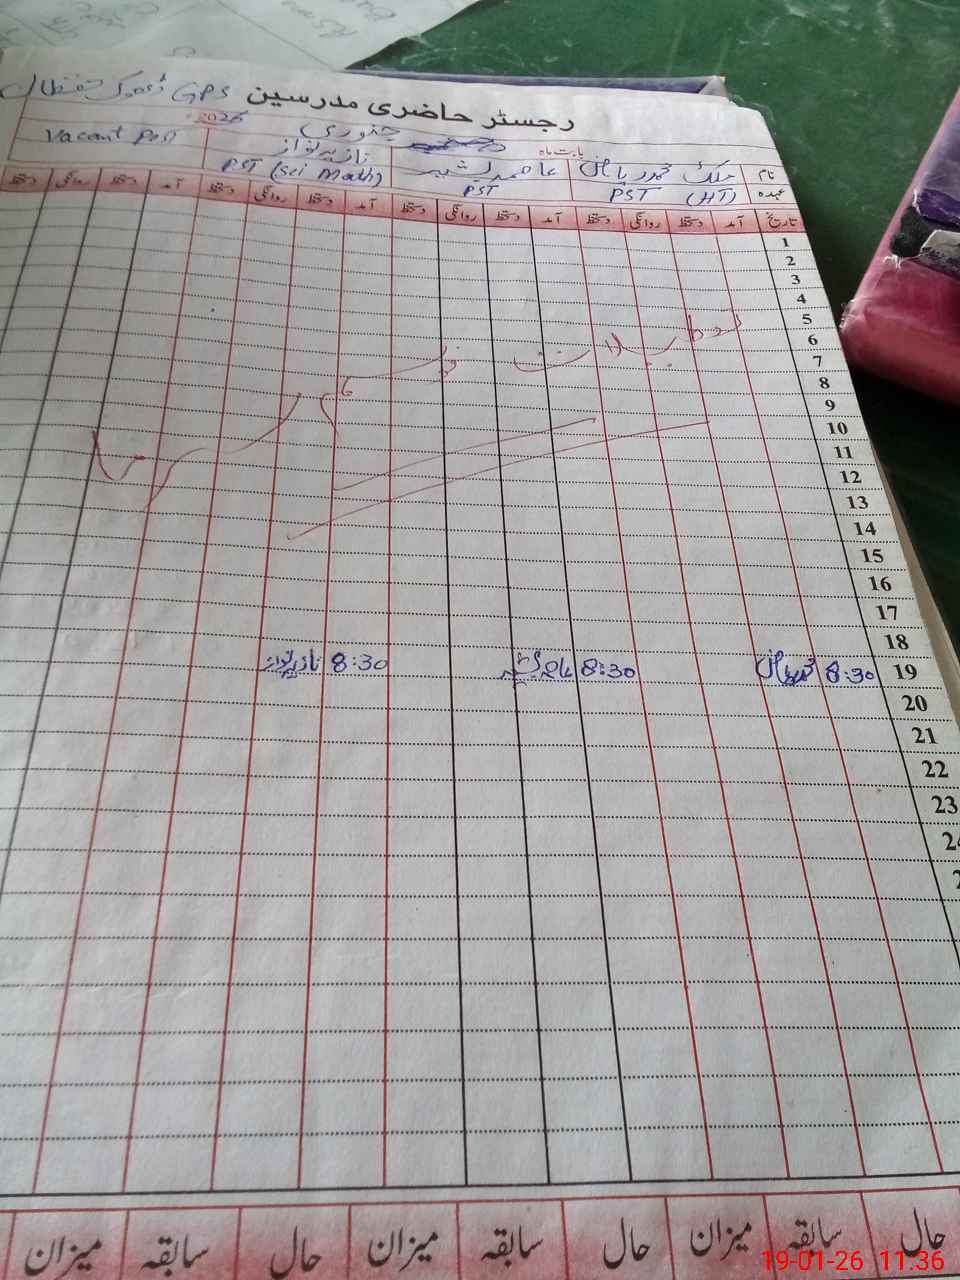 رجسٹر حاضری مدرسین GPS ڈھوک
بابت ماہ جنوری 2026
نام ملک محمد ریاض عاصمہ بشیر نازیہ نواز Vacant Post
عہدہ PST (HT) PST PST (Sci Math)
تاریخ آمد دستخط روانگی دستخط آمد دستخط روانگی دستخط آمد دستخط روانگی دستخط آمد دستخط روانگی دستخط
1
2
3
4
5
6
7
8
9
10
11
12
13
14
15
16
17
18
19 8:30 محمد ریاض 8:30 عاصمہ بشیر 8:30 نازیہ نواز
20
21
22
23
حال سابقہ میزان حال سابقہ میزان حال سابقہ میزان
19-01-26 11:36